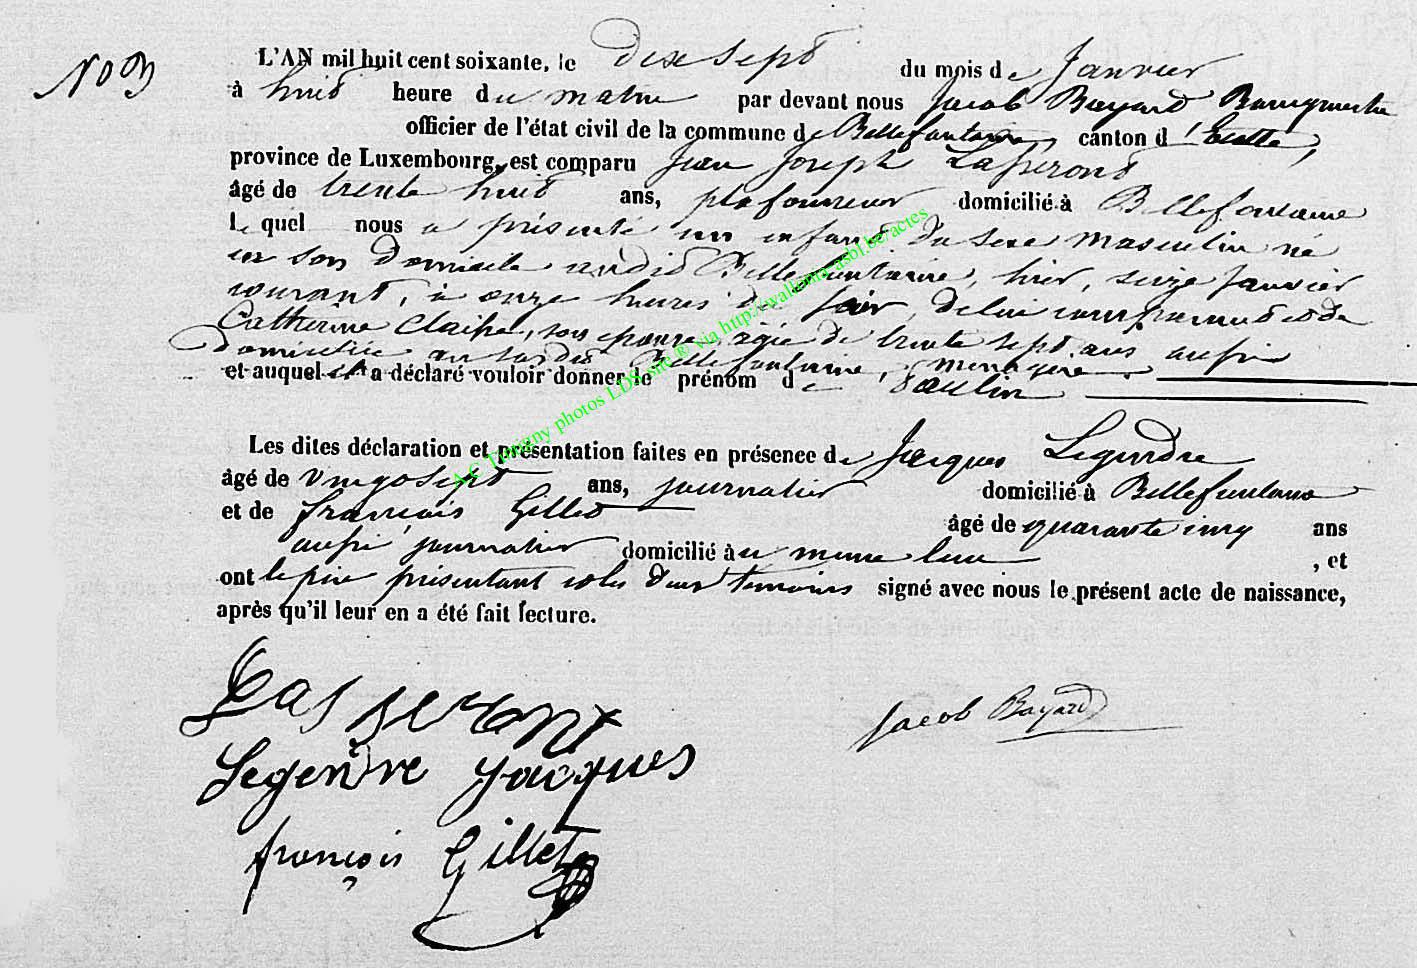 No 3
L'AN mil huit cent soixante, le dix sept du mois de Janvier
à huit heure du matin par devant nous Jacob Bayard Bourgmestre
officier de l'état civil de la commune de Bellefontaine, canton d'Etalle,
province de Luxembourg, est comparu Jean Joseph Lasseront
âgé de trente huit ans, plafonneur domicilié à Bellefontaine
lequel nous a présenté un enfant du sexe masculin né
en son domicile audit Bellefontaine, hier, seize Janvier
courant, à onze heures du soir, de lui comparant et de
Catherine Claisse, son épouse, agée de trente sept ans aussi
domiciliée au susdit Bellefontaine, menagère
et auquel il a déclaré vouloir donner le prénom de Paulin
Les dites déclaration et présentation faites en présence de Jacques Legendre
âgé de vingt sept ans, journalier domicilié à Bellefontaine
et de françois Gillet âgé de quarante cinq ans
aussi journalier domicilié au meme lieu , et
ont le père présentant et les deux temoins signé avec nous le présent acte de naissance,
après qu'il leur en a été fait lecture.
Lasseront
Jacob Bayard
Legendre jacques
françois Gillet
A.C Tintigny photos LDS site ® via http://wallonia-asbl.be/actes